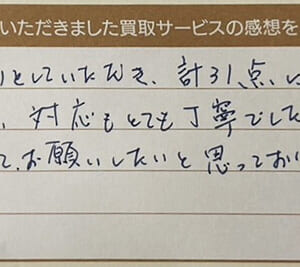 いただきました買取サービスの感想を
りとしていただき、計31点、に
、対応もとても丁寧でした
て、お願いしたいと思ってお